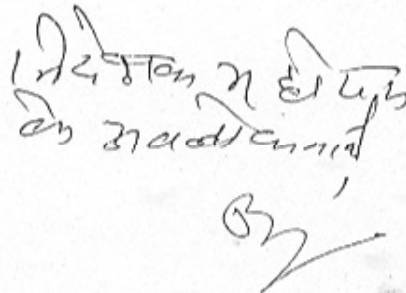 निदेशक महोदय
के अवलोकनार्थ